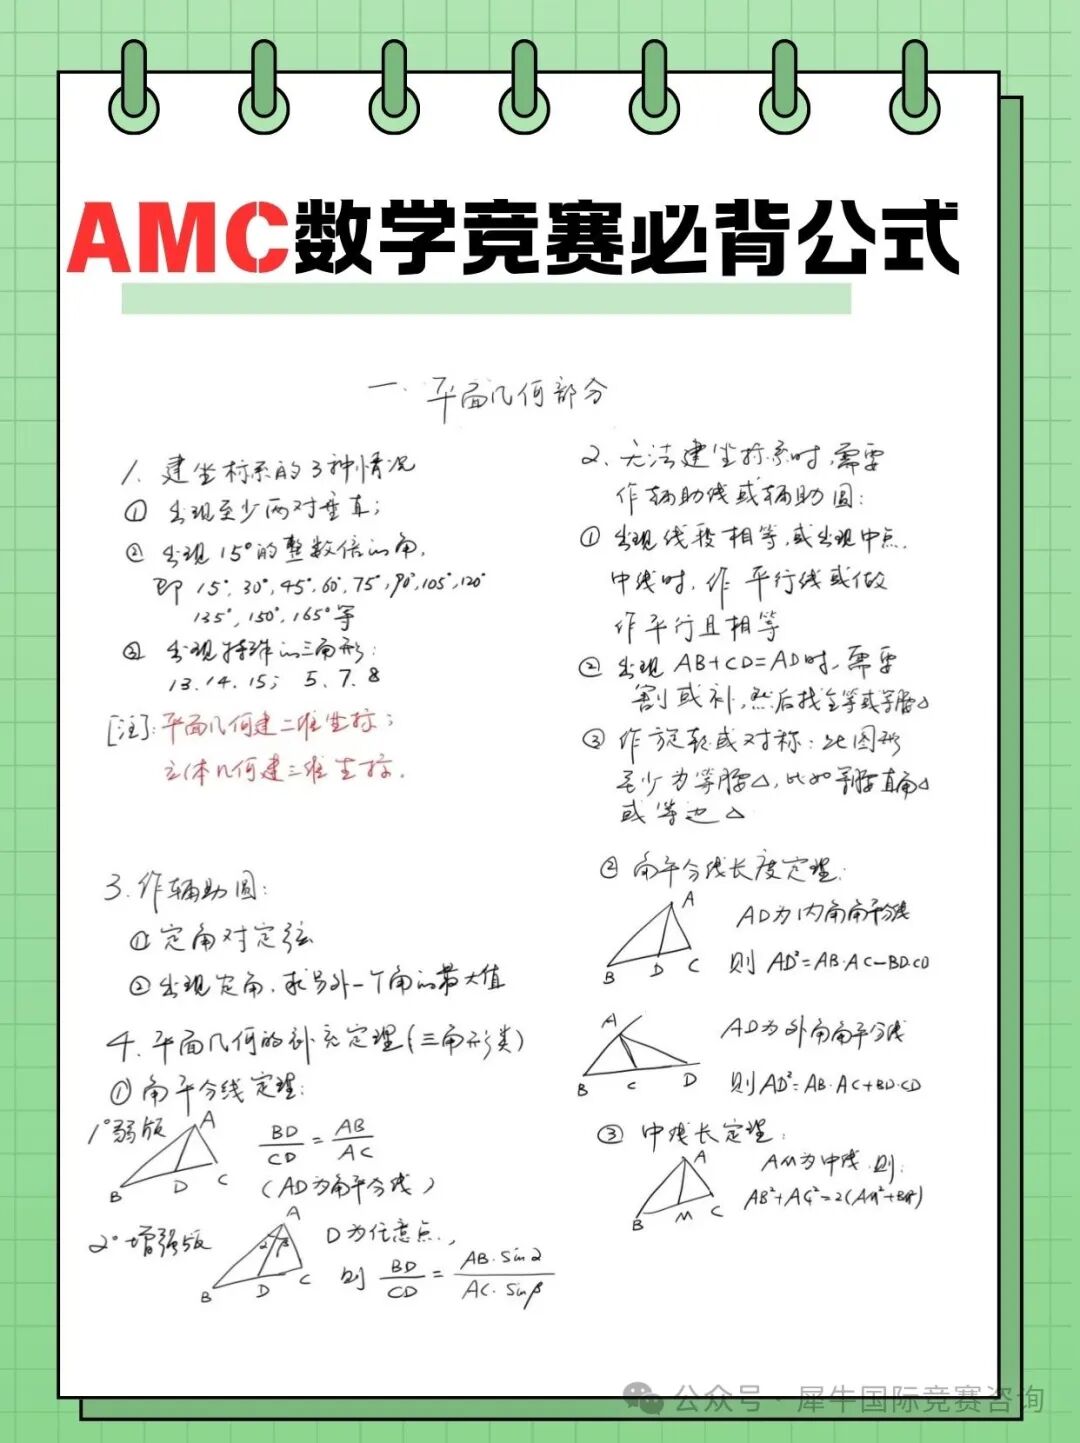 AMC数学竞赛必背公式
一. 平面几何部分
1. 建坐标系的3种情况
① 出现至少两对垂直；
② 出现15°的整数倍的角，
即 15°, 30°, 45°, 60°, 75°, 90°, 105°, 120°
135°, 150°, 165°等
③ 出现特殊的三角形：
13. 14. 15； 5、7、8
[注]: 平面几何建二维坐标；
立体几何建三维坐标.
2. 无法建坐标系时, 需要
作辅助线或辅助圆：
① 出现线段相等, 或出现中点.
中线时, 作 平行线或做
作平行且相等
② 出现 AB+CD=AD时, 需要
割或补, 然后找全等或等腰△
③ 作旋转或对称：此图形
至少为等腰△, 比如等腰直角△
或等边△
3. 作辅助圆：
① 定角对定弦
② 出现定角, 求另外一个角的最大值
4. 平面几何的补充定理(三角形类)
① 角平分线定理：
1°弱版
A
B
D
C
BD/CD = AB/AC
(AD为角平分线)
2°增强版
A
α β
B
D
C
D为任意点,
则 BD/CD = AB·sinα/AC·sinβ
② 角平分线长度定理：
A
B
D
C
AD为内角角平分线
则 AD²=AB·AC-BD·CD
A
B
C
D
AD为外角角平分线
则AD²=AB·AC+BD·CD
③ 中线长定理：
A
B
M
C
AM为中线, 则:
AB²+AC²=2(AM²+BM²)
公众号·犀牛国际竞赛咨询